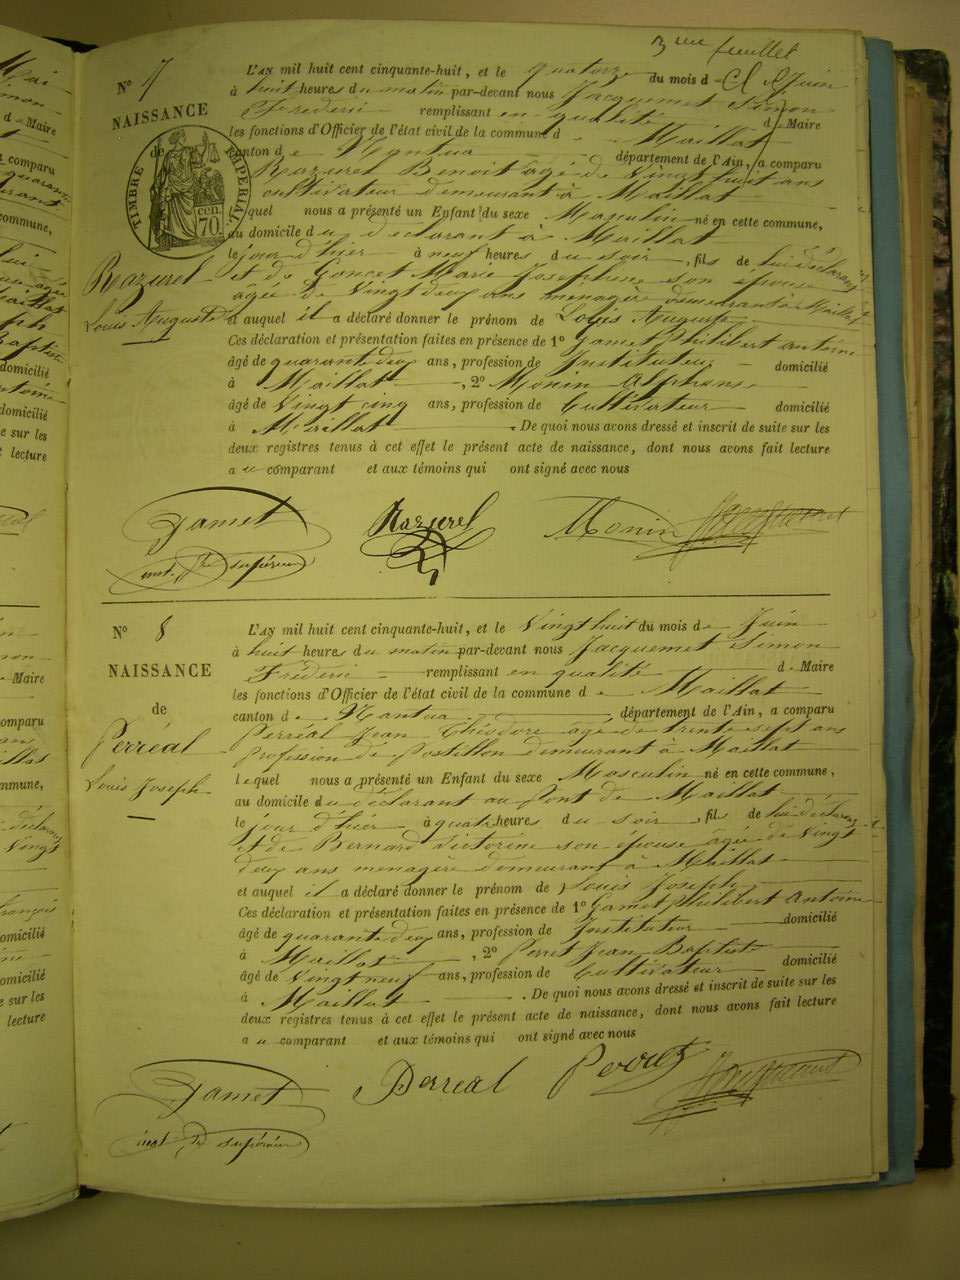 3me feuillet
No 7
NAISSANCE
de
TIMBRE IMPERIAL
70 cen.
Razurel
Louis Auguste
L'AN mil huit cent cinquante-huit, et le quatorze du mois de Juin
à huit heures du matin par-devant nous Jacquemet Simon
Frédéric remplissant en qualité de Maire
les fonctions d'Officier de l'état civil de la commune de Maillat
canton de Nantua département de l'Ain, a comparu
Razurel Benoit âgé de vingt huit ans
cultivateur demeurant à Maillat
lequel nous a présenté un Enfant du sexe Masculin né en cette commune,
au domicile du déclarant à Maillat
le jour d'hier à neuf heures du soir, fils de lui déclarant
et de Goncet Marie Josephine son épouse
âgée de vingt deux ans ménagère demeurant à Maillat
et auquel il a déclaré donner le prénom de Louis Auguste
Ces déclaration et présentation faites en présence de 1o Gamet Philibert Antoine
âgé de quarante deux ans, profession de Instituteur domicilié
à Maillat, 2o Monin Alphonse
âgé de vingt cinq ans, profession de Cultivateur domicilié
à Maillat. De quoi nous avons dressé et inscrit de suite sur les
deux registres tenus à cet effet le présent acte de naissance, dont nous avons fait lecture
au comparant et aux témoins qui ont signé avec nous
Gamet Razurel Monin Jacquemet
inst. supérieur
No 8
NAISSANCE
de
Perréal
Louis Joseph
L'AN mil huit cent cinquante-huit, et le vingt huit du mois de Juin
à huit heures du matin par-devant nous Jacquemet Simon
Frédéric remplissant en qualité de Maire
les fonctions d'Officier de l'état civil de la commune de Maillat
canton de Nantua département de l'Ain, a comparu
Perréal Jean Théodore âgé de trente sept ans
profession de postillon demeurant à Maillat
lequel nous a présenté un Enfant du sexe Masculin né en cette commune,
au domicile du déclarant au Pont de Maillat
le jour d'hier à quatre heures du soir, fils de lui déclarant
et de Bernard Victorine son épouse âgée de vingt
deux ans menagère demeurant à Maillat
et auquel il a déclaré donner le prénom de Louis Joseph
Ces déclaration et présentation faites en présence de 1o Gamet Philibert Antoine
âgé de quarante deux ans, profession de Instituteur domicilié
à Maillat, 2o Perret Jean Baptiste
âgé de vingt neuf ans, profession de Cultivateur domicilié
à Maillat. De quoi nous avons dressé et inscrit de suite sur les
deux registres tenus à cet effet le présent acte de naissance, dont nous avons fait lecture
au comparant et aux témoins qui ont signé avec nous
Gamet Perréal Perret Jacquemet
inst. supérieur